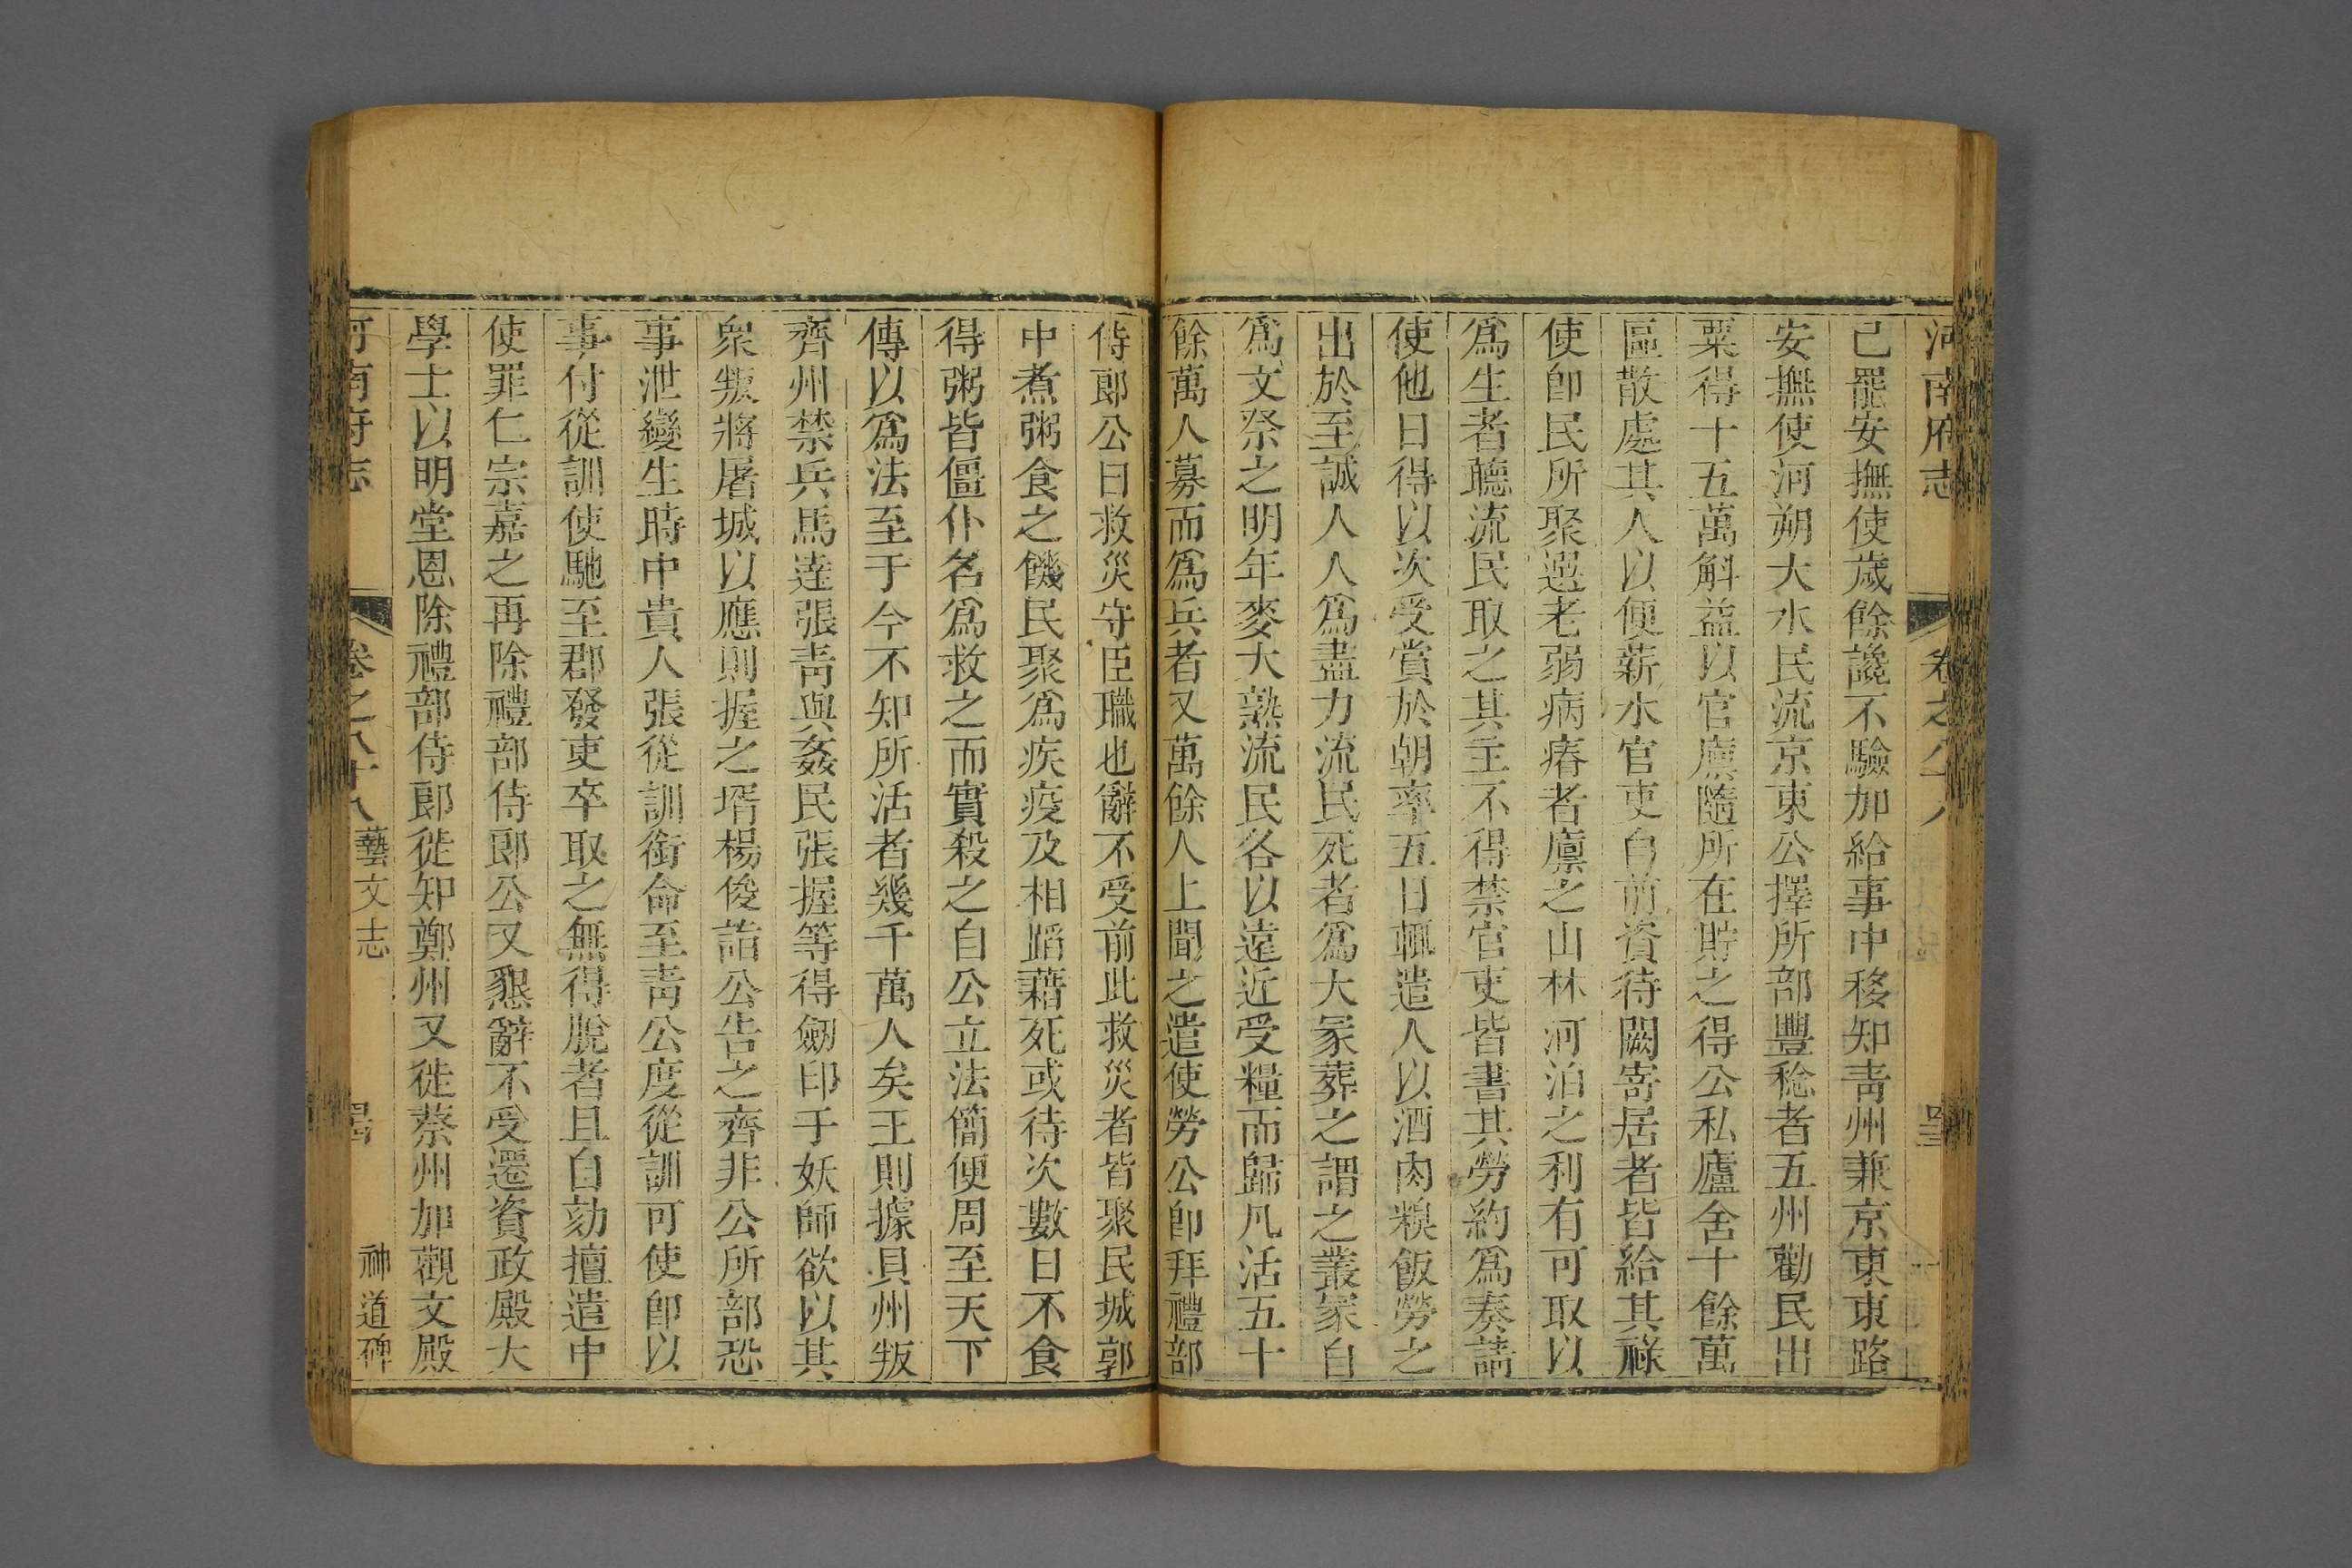 河南府志 卷之八十八
已罷安撫使歲餘讒不驗加給事中移知靑州兼京東東路
安撫使河朔大水民流京東公擇所部豐稔者五州勸民出
粟得十五萬斛益以官廩隨所在貯之得公私廬舍十餘萬
區散處其人以便薪水官吏自前資待闕寄居者皆給其祿
使卽民所聚選老弱病瘠者廩之山林河泊之利有可取以
爲生者聽流民取之其主不得禁官吏皆書其勞約爲奏請
使他日得以次受賞於朝率五日輒遣人以酒肉糗飯勞之
出於至誠人人爲盡力流民死者爲大冢葬之謂之叢冢自
爲文祭之明年麥大熟流民各以遠近受糧而歸凡活五十
餘萬人募而爲兵者又萬餘人上聞之遣使勞公卽拜禮部
侍郎公曰救災守臣職也辭不受前此救災者皆聚民城郭
中煮粥食之饑民聚爲疾疫及相蹈藉死或待次數日不食
得粥皆僵仆名爲救之而實殺之自公立法簡便周至天下
傳以爲法至于今不知所活者幾千萬人矣王則據貝州叛
齊州禁兵馬達張靑與姦民張握等得劒印于妖師欲以其
衆叛將屠城以應則握之壻楊俊詣公告之齊非公所部恐
事泄變生時中貴人張從訓銜命至靑公度從訓可使卽以
事付從訓使馳至郡發吏卒取之無得脫者且自劾擅遣中
使罪仁宗嘉之再除禮部侍郎公又懇辭不受遷資政殿大
學士以明堂恩除禮部侍郎徙知鄭州又徙蔡州加觀文殿
河南府志 卷之八十八 藝文志 神道碑